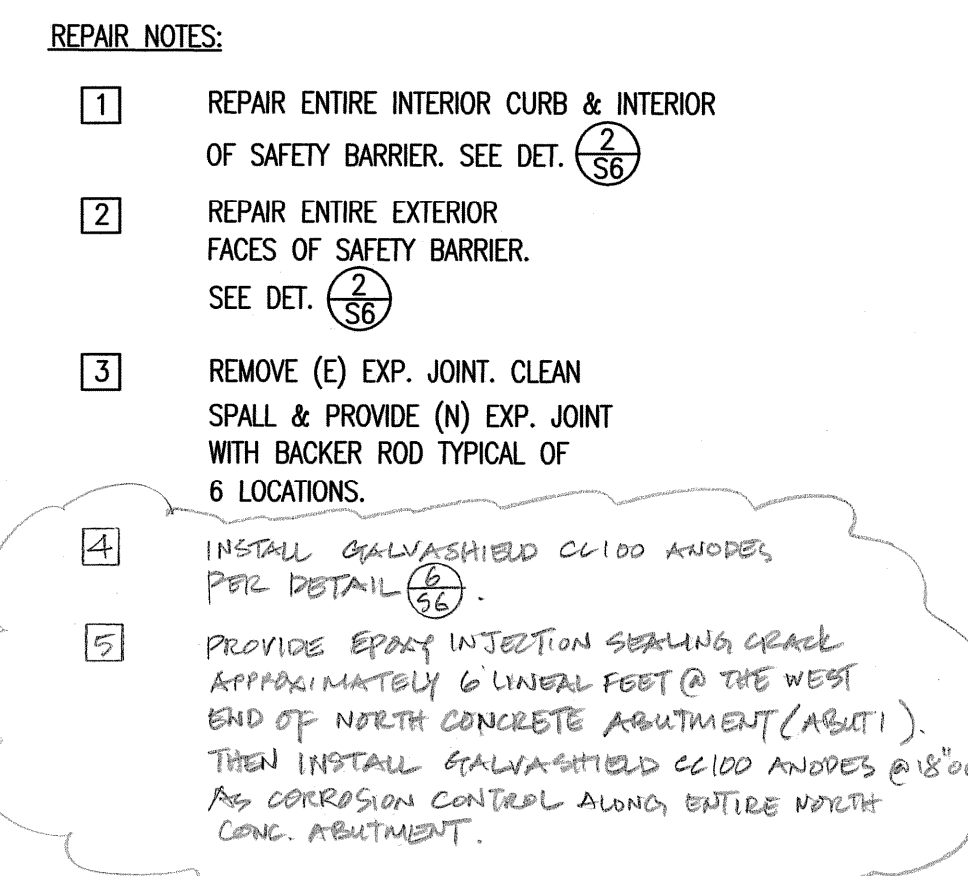 REPAIR NOTES:
1 REPAIR ENTIRE INTERIOR CURB & INTERIOR
OF SAFETY BARRIER. SEE DET. 2/S6
2 REPAIR ENTIRE EXTERIOR
FACES OF SAFETY BARRIER.
SEE DET. 2/S6
3 REMOVE (E) EXP. JOINT. CLEAN
SPALL & PROVIDE (N) EXP. JOINT
WITH BACKER ROD TYPICAL OF
6 LOCATIONS.
4 INSTALL GALVASHIELD CC100 ANODES
PER DETAIL 6/S6.
5 PROVIDE EPOXY INJECTION SEALING CRACK
APPROXIMATELY 6 LINEAL FEET @ THE WEST
END OF NORTH CONCRETE ABUTMENT (ABUT1).
THEN INSTALL GALVASHIELD CC100 ANODES @ 18"OC
AS CORROSION CONTROL ALONG ENTIRE NORTH
CONC. ABUTMENT.